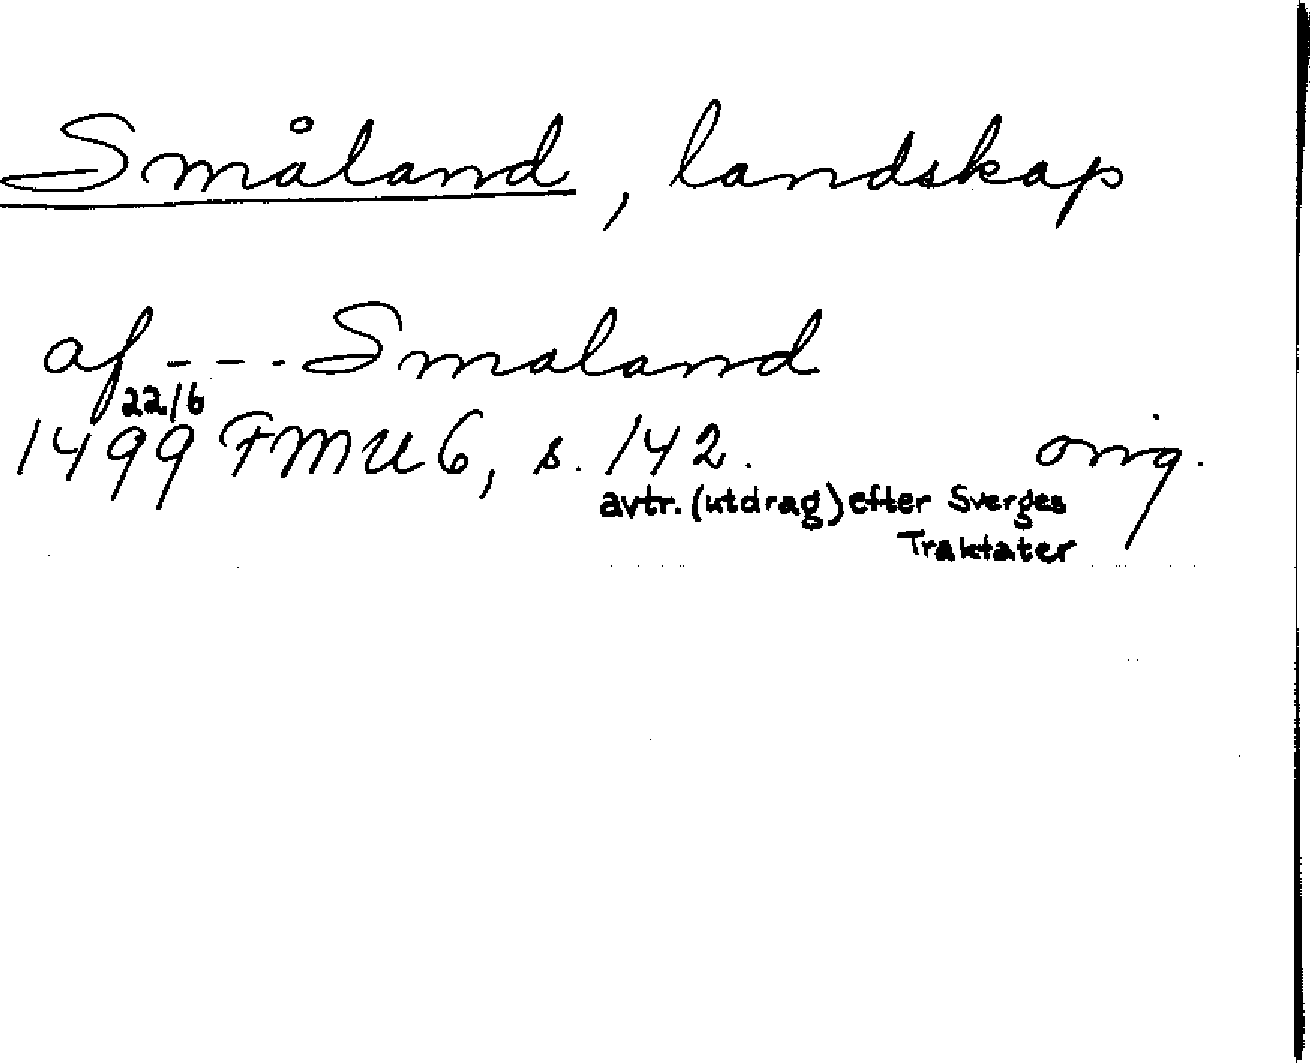 Småland, landskap
af - - - Smaland
22/6
1499 FMU 6, s. 142. orig.
avtr. (utdrag) efter Sverges
Traktater